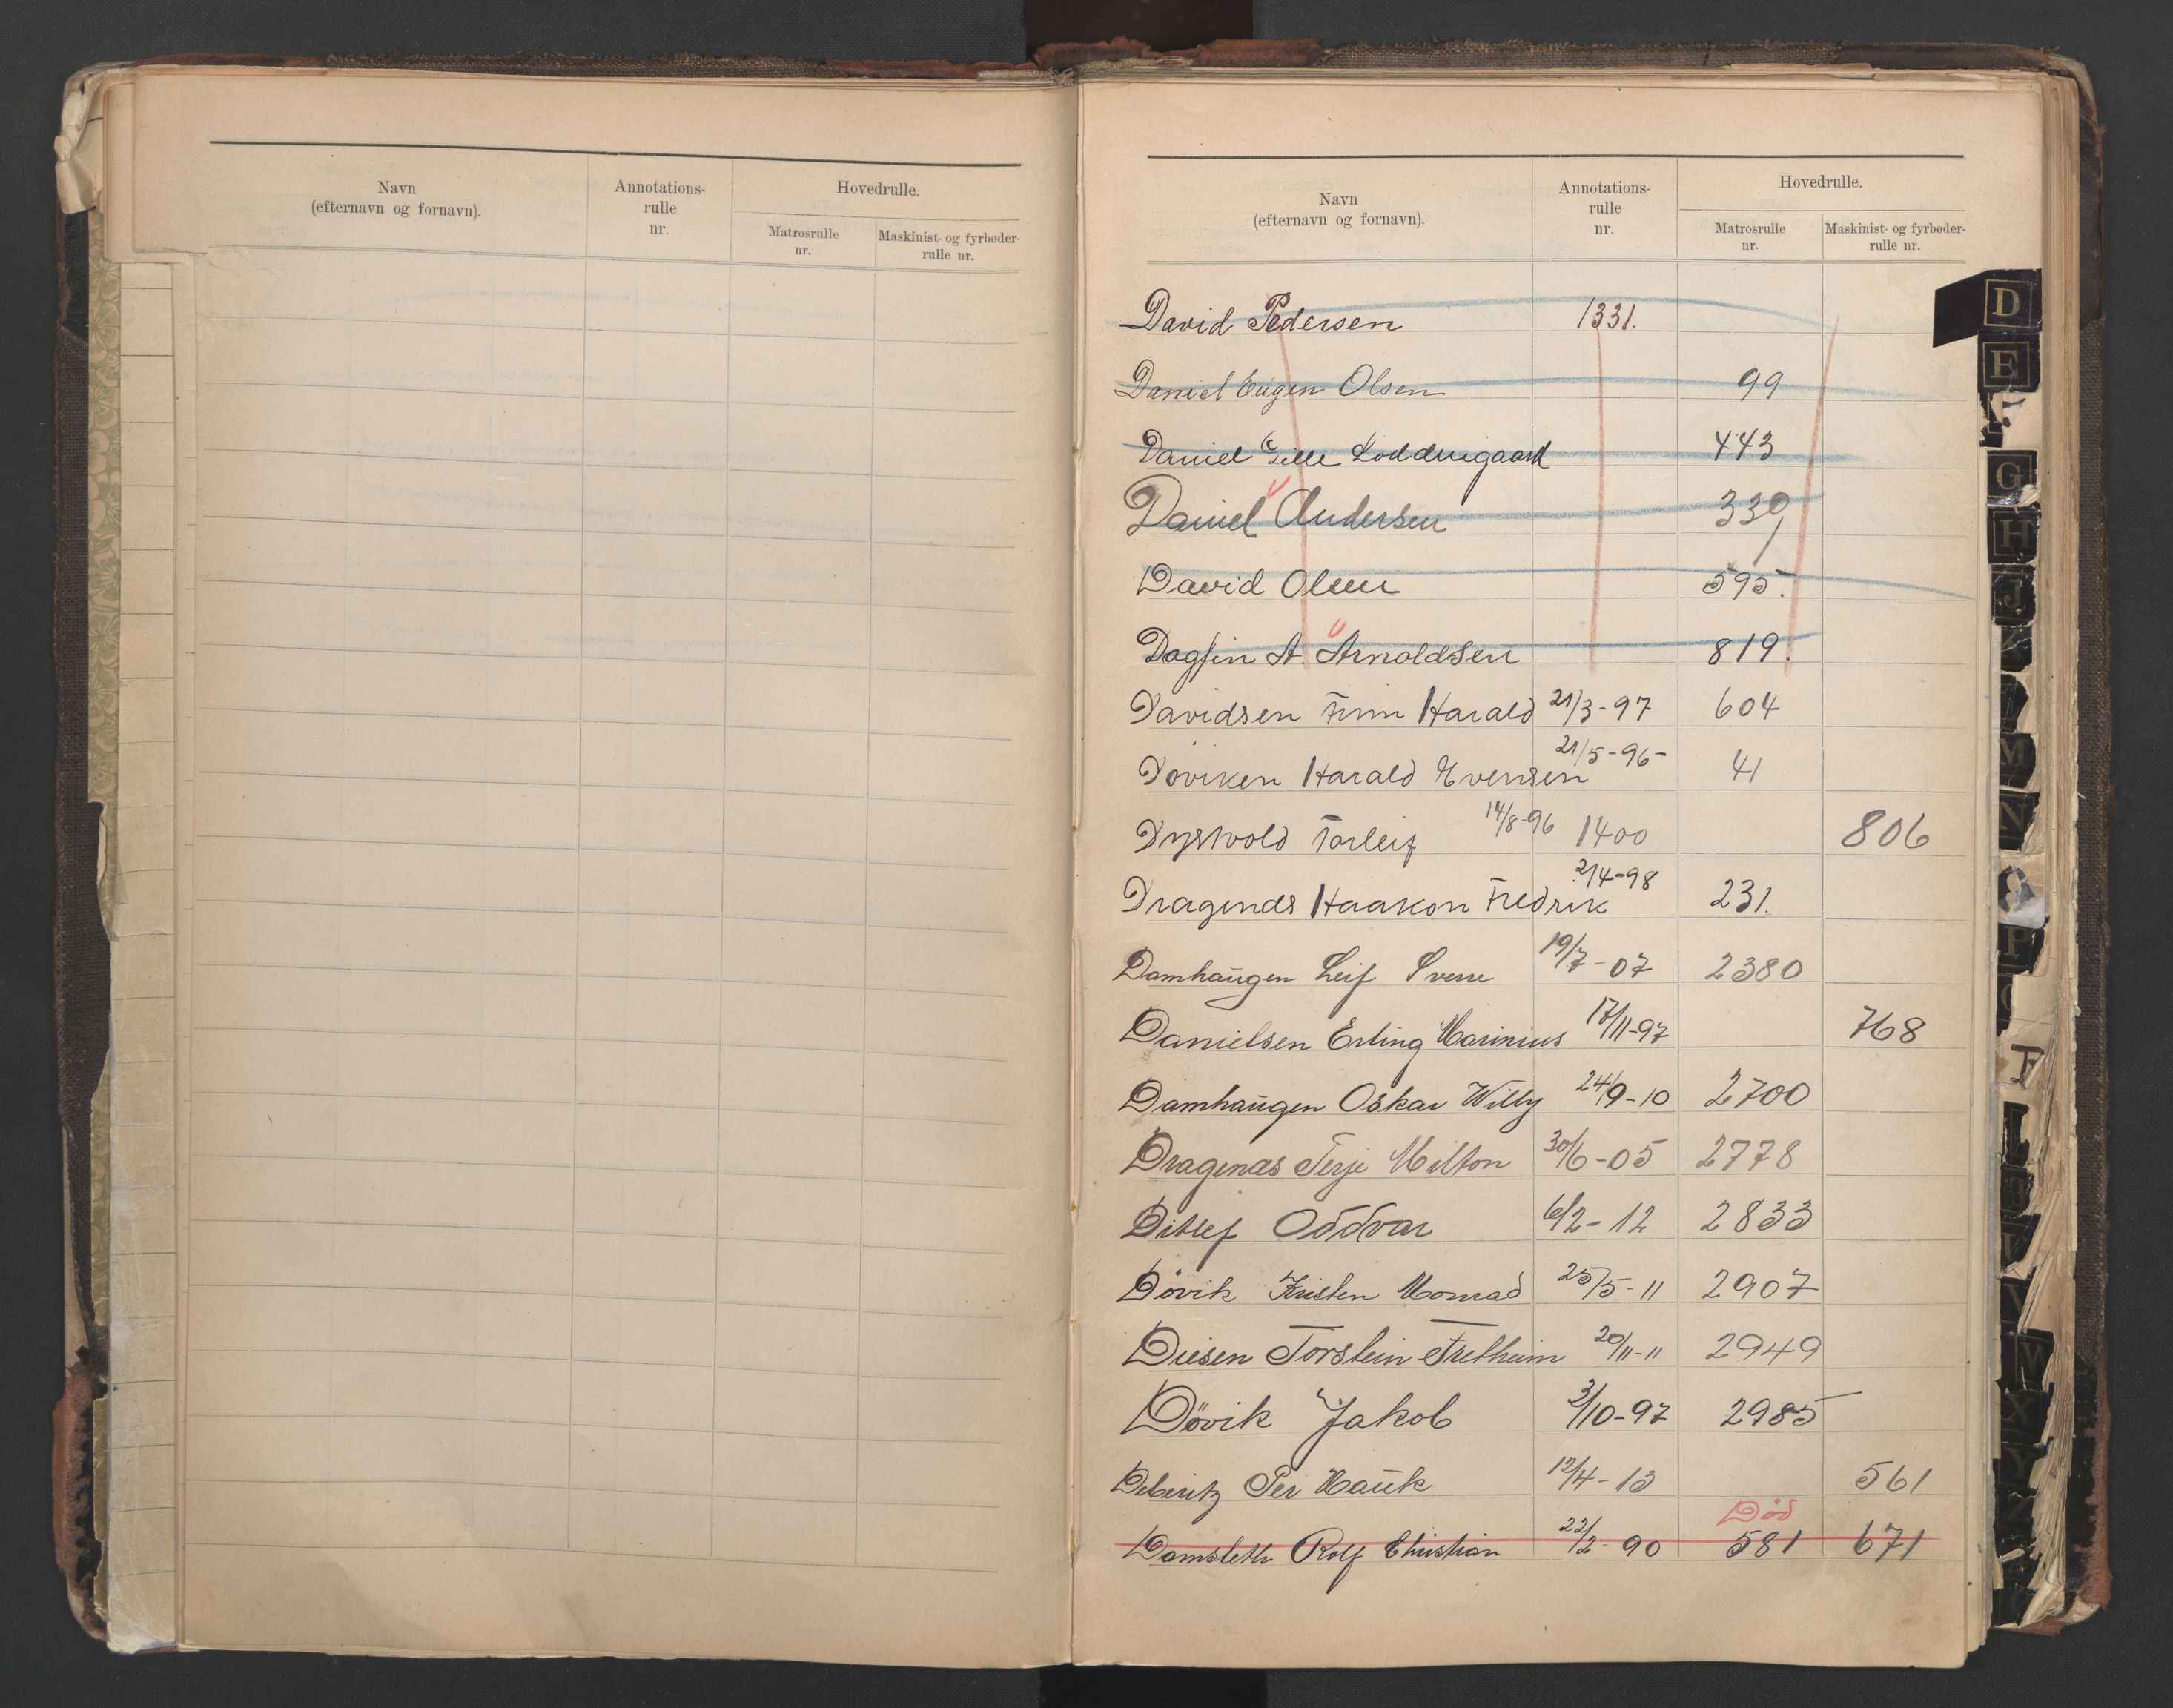 Navn
(efternavn og fornavn).
Annotations-
rulle
nr.
Hovedrulle.
Matrosrulle
nr.
Maskinist- og fyrbøder-
rulle nr.
Navn
(efternavn og fornavn).
Annotations-
rulle
nr.
Hovedrulle.
Matrosrulle
nr.
Maskinist- og fyrbøder-
rulle nr.
David Pedersen 1331.
Daniel Eugen Olsen 99
Daniel 443
Daniel Andersen 339
David Olsen 595.
Dagfin A. Arnoldsen 819.
Davidsen Finn Harald 21/3-97 604
Døviken Harald Evensen 21/5-96- 41
Dystvold Torleif 14/8-96 1400 806
Dragenes Haakon Fredrik 2/4-98 231.
Damhaugen Leif Sverre 19/7-07 2380
Danielsen Erling Marinius 17/11-97 768
Damhaugen Oskar Willy 24/9-10 2700
Dragenæs Terje Milton 30/6-05 2778
Ditlef Oddvar 6/2-12 2833
Døvik Kristen Monrad 25/5-11 2907
Diesen Torstein Fretheim 20/11-11 2949
Døvik Jakob 3/10-97 2985
Deberitz Per Hauk 12/4-13 561
Død
Damsleth Rolf Christian 22/2-90 581 671
D
E
F
G
H
J
K
M
N
P
T
V
W
X
Y
Z